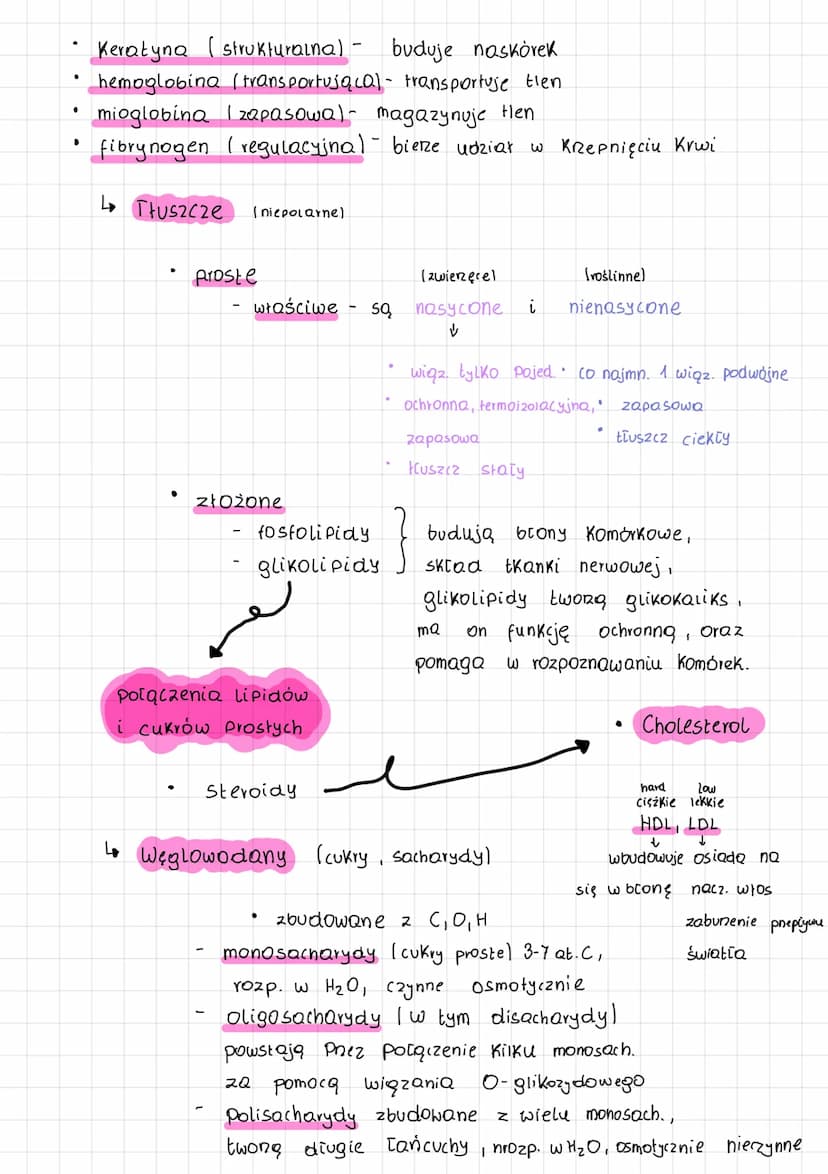 • Keratyna (strukturalna) - buduje naskórek
• hemoglobina (transportująca) - transportuje tlen
• mioglobina (zapasowa) - magazynuje tlen
• fibrynogen (regulacyjna) - bierze udział w krzepnięciu krwi
↳ Tłuszcze (niepolarne)
• proste (zwierzęce) (roślinne)
- właściwe - są nasycone i nienasycone
↓
• wiąz. tylko pojed. • co najmn. 1 wiąz. podwójne
• ochronna, termoizolacyjna, • zapasowa
zapasowa • tłuszcz ciekły
• tłuszcz stały
• złożone
- fosfolipidy } budują błony komórkowe,
- glikolipidy skład tkanki nerwowej,
glikolipidy tworzą glikokaliks,
ma on funkcję ochronną, oraz
pomaga w rozpoznawaniu komórek.
połączenia lipidów
i cukrów prostych
• Cholesterol
• steroidy
hard low
ciężkie lekkie
HDL, LDL
↓ ↓
↳ Węglowodany (cukry, sacharydy)
wbudowuje osiada na
się w błonę nacz. włos
zaburzenie przepływu
światła
• zbudowane z C, O, H
- monosacharydy (cukry proste) 3-7 at. C,
rozp. w H₂O, czynne osmotycznie
- oligosacharydy (w tym disacharydy)
powstają przez połączenie kilku monosach.
za pomocą wiązania O-glikozydowego
- polisacharydy zbudowane z wielu monosach.,
tworzą długie łańcuchy, nrozp. w H₂O, osmotycznie nieczynne